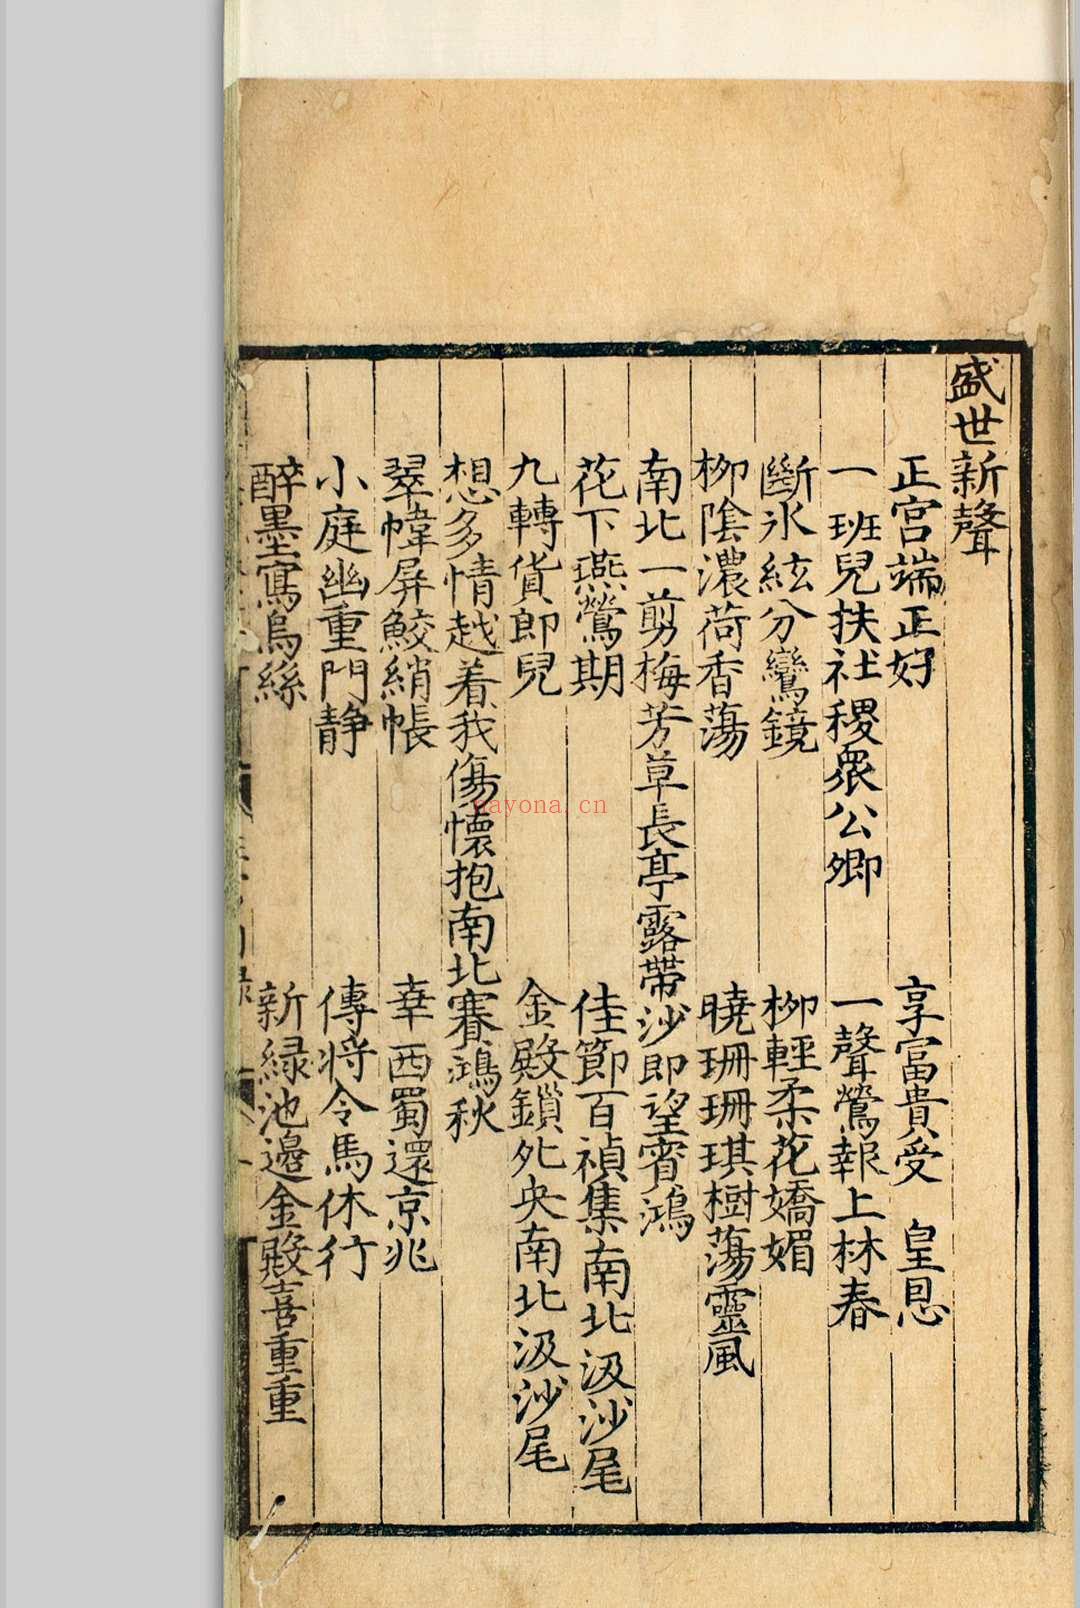 盛世新聲
正宮端正好　享富貴受　皇恩
一班兒扶社稷衆公卿　一聲鶯報上林春
斷氷絃分鸞鏡　柳輕柔花嬌媚
柳陰濃荷香蕩　曉珊珊琪樹蕩靈風
南北一剪梅芳草長亭露帶沙即望賓鴻
花下燕鶯期　佳節百禎集南北汲沙尾
九轉貨郎兒　金殿鎖央南北汲沙尾
想多情越着我傷懷抱南北賽鴻秋
翠幃屏鮫綃帳　幸西蜀還京兆
小庭幽重門静　傳將令馬休行
醉墨寫烏絲　新緑池邊金殿喜重重
nayona.cn